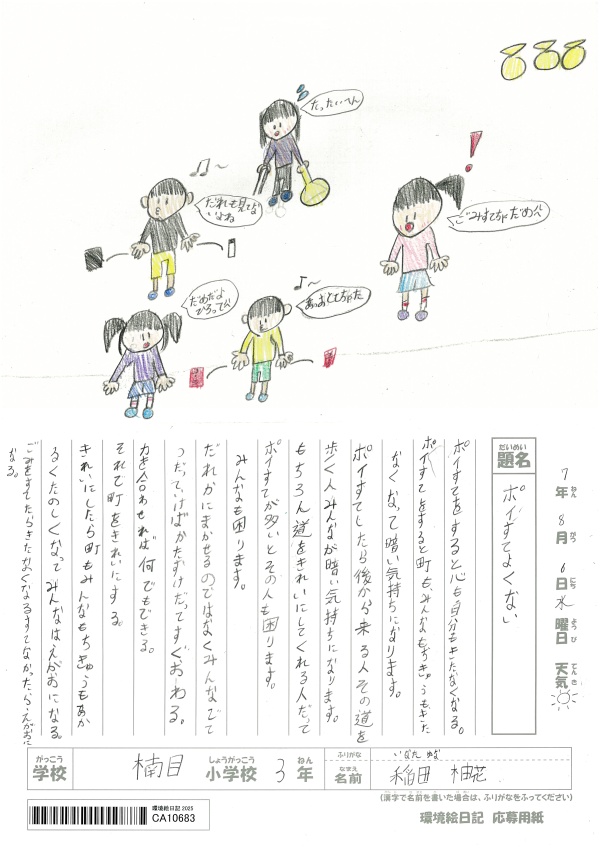 たったいへん
だれも見てな
いよね
ごみすてちゃだめ
だめだよ
ひろって
あっおとしちゃた
だいめい
題名
ポイすてよくない
7年8月6日水曜日 天気
ねん がつ にち ようび てんき
ポイすてをすると心も自分もきたなくなる。
ポイすてをすると町も、みんなもちきゅうもきた
なくなって暗い気持ちになります。
ポイすてしたら後から来る人その道を
歩く人みんなが暗い気持ちになります。
もちろん道をきれいにしてくれる人だって
ポイすてが多いとその人も困ります。
みんなも困ります。
だれかにまかせるのではなくみんなでて
つだっていけばかたずけだってすぐおーわる。
力を合わせれば何でもできる。
それで町をきれいにする。
きれいにしたら町もみんなもちきゅうもあか
るくたのしくなってみんなはえがおになる。
ごみをすてたらきたなくなるすてなかったらえがおに
なる。
がっこう しょうがっこう ねん ふりがな
学校 楠目 小学校 3年
なまえ
名前 稲田 柚花
いなた ゆな
(漢字で名前を書いた場合は、ふりがなをふってください)
環境絵日記 2025
CA10683
環境絵日記 応募用紙